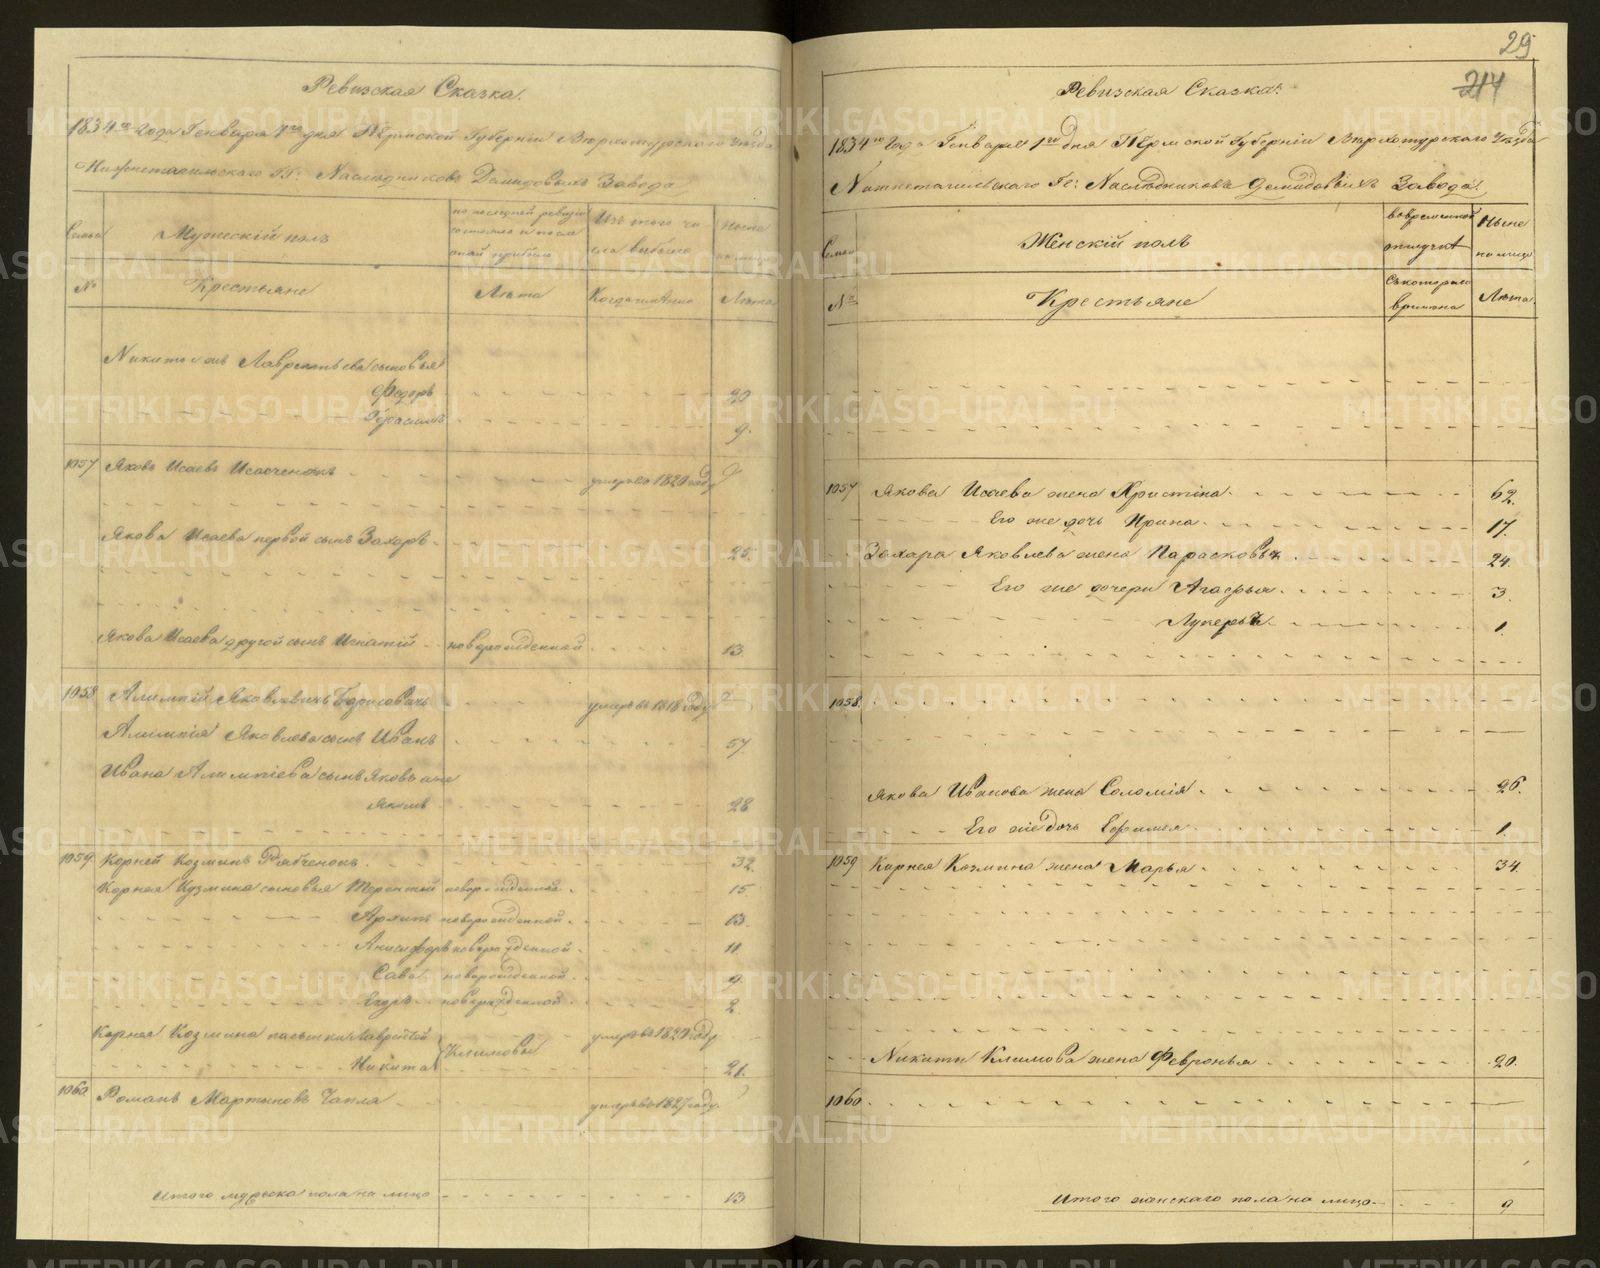 29
214
Ревизская Сказка.
1834го Года Генваря 1го дня Пермской Губернiи Верхотурскаго Уезда
Нижнетагильскаго ГГ: Наследниковъ Демидовыхъ Завода
Семьи
Мужескiй полъ
по последней ревизiи состояло и после оной прибыло
Изъ того числа выбыло
Ныне на лицо
№
Крестьяне
Лета
Когда именно
Лета
Лаврентьева сыновья
Федоръ 20
Герасимъ 9.
1057 Яковъ Исаевъ умеръ въ 1820 году
Якова Исаева первой сынъ Захаръ 25.
Якова Исаева другой сынъ Игнатiй новорожденной 13.
1058 Алимпiй Яковлевичь Борисовичь умеръ въ 1818 году
Алимпiя Яковлева сынъ Иванъ 57.
Ивана Алимпiева сынъ Яковъ
28
1059. Корней Козминъ Рябченокъ 32.
Корнея Козмина сыновья Терентiй новорожденной 15
Архипъ новорожденной 13.
Анисифоръ новорожденной 11
Сава новорожденной 9.
Егоръ новорожденной 2.
Корнея Козмина пасынки Лаврентiй умеръ въ 1820 году
Никита Климовы 21.
1060 Романъ Мартыновъ Чапла умеръ въ 1827 году.
Итого мужеска пола на лицо 13
Ревизская Сказка.
1834го Года Генваря 1го дня Пермской Губернiи Верхотурскаго Уезда
Нижнетагильскаго ГГ: Наследниковъ Демидовыхъ Завода
Семьи
Женскiй полъ
во временной отлучке
Ныне на лицо
№
Крестьяне
Съ котораго времени
Лета
1057 Якова Исаева жена Христина 62.
Его же дочь Ирина 17.
Захара Яковлева жена Парасковья 24.
Его же дочери Агафья 3.
Лукерья 1.
1058
Якова Иванова жена Соломiя 26.
Его же дочь Ефимья 1.
1059 Корнея Козмина жена Марья 34.
Никиты Климова жена Февронья 20.
1060
Итого женскаго пола на лицо 9
METRIKI.GASO-URAL.RU